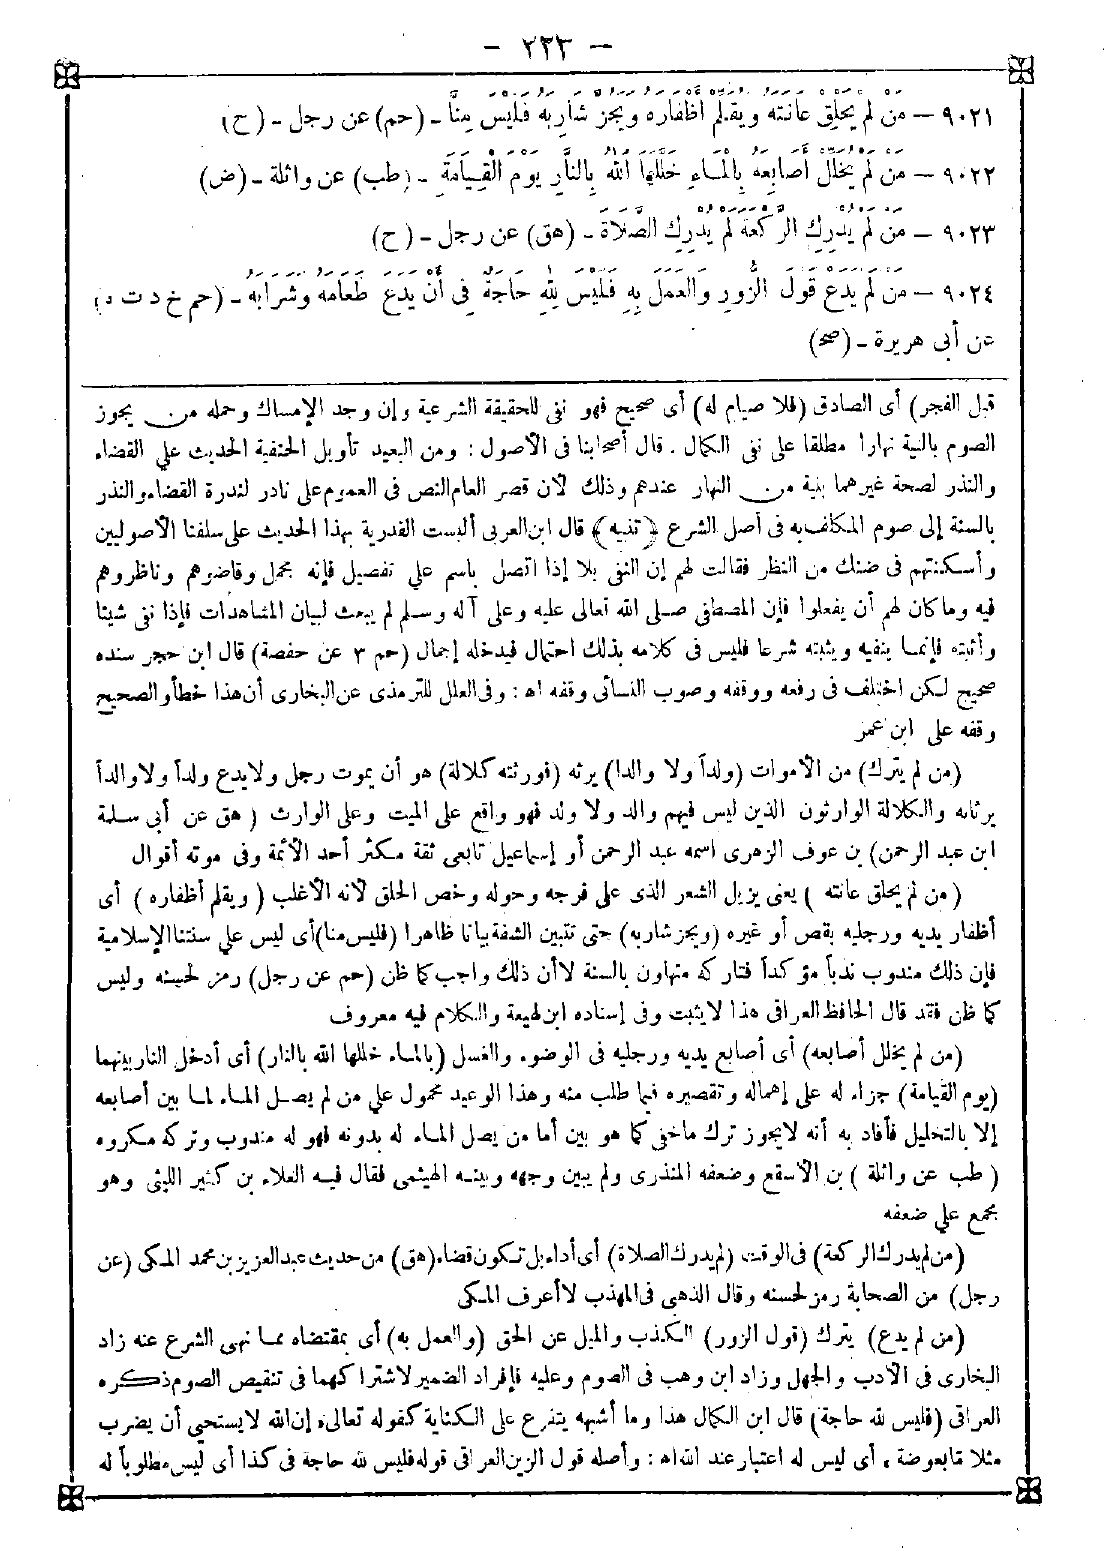 — ٢٢٣ —
٩٠٢١ — مَنْ لَمْ يَحْلِقْ عَانَتَهُ وَيُقَلِّمْ أَظْفَارَهُ وَيَجُزَّ شَارِبَهُ فَلَيْسَ مِنَّا - (حم) عن رجل - (ح)
٩٠٢٢ — مَنْ لَمْ يُخَلِّلْ أَصَابِعَهُ بِالْمَاءِ خَلَّلَهَا اللهُ بِالنَّارِ يَوْمَ الْقِيَامَةِ - (طب) عن واثلة - (ض)
٩٠٢٣ — مَنْ لَمْ يُدْرِكِ الرَّكْعَةَ لَمْ يُدْرِكِ الصَّلَاةَ - (هق) عن رجل - (ح)
٩٠٢٤ — مَنْ لَمْ يَدَعْ قَوْلَ الزُّورِ وَالْعَمَلَ بِهِ فَلَيْسَ لِلهِ حَاجَةٌ فِى أَنْ يَدَعَ طَعَامَهُ وَشَرَابَهُ - (حم خ د ت ه)
عن أبى هريرة - (صح)
قبل الفجر) أى الصادق (فلا صيام له) أى صحيح فهو نفى للحقيقة الشرعية وإن وجد الإمساك وحمله من يجوز
الصوم بالنية نهارا مطلقا على نفى الكمال . قال أصحابنا فى الأصول : ومن البعيد تأويل الحنفية الحديث على القضاء
والنذر لصحة غيرهما بنية من النهار عندهم وذلك لأن قصر العام النص فى العموم على نادر لندرة القضاء والنذر
بالسنة إلى صوم المكلف به فى أصل الشرع ﴿ تنبيه ﴾ قال ابن العربى ألبست القدرية بهذا الحديث على سلفنا الأصوليين
وأسكنتهم فى ضنك من النظر فقالت لهم إن النفى بلا إذا اتصل باسم على تفصيل فإنه مجمل وفاضوهم وناظروهم
فيه وما كان لهم أن يفعلوا فإن المصطفى صلى الله تعالى عليه وعلى آله وسلم لم يبعث لبيان المشاهدات فإذا نفى شيئا
وأثبته فإنما ينفيه ويثبته شرعا فليس فى كلامه بذلك احتمال فيدخله إجمال (حم ٣ عن حفصة) قال ابن حجر سنده
صحيح لكن اختلف فى رفعه ووقفه وصوب النسائى وقفه اه : وفى العلل للترمذى عن البخارى أن هذا خطأ والصحيح
وقفه على ابن عمر
(من لم يترك) من الأموات (ولداً ولا والدا) يرثه (فورثته كلالة) هو أن يموت رجل ولا يدع ولداً ولا والداً
يرثانه والكلالة الوارثون الذين ليس فيهم والد ولا ولد فهو واقع على الميت وعلى الوارث ( هق عن أبى سلمة
ابن عبد الرحمن) بن عوف الزهرى اسمه عبد الرحمن أو إسماعيل تابعى ثقة مكثر أحد الأئمة وفى موته أقوال
(من لم يحلق عانته ) يعنى يزيل الشعر الذى على فرجه وحوله وخص الحلق لأنه الأغلب ( ويقلم أظفاره ) أى
أظفار يديه ورجليه بقص أو غيره (ويجز شاربه) حتى تتبين الشفة بيانا ظاهرا (فليس منا) أى ليس على سنتنا الإسلامية
فإن ذلك مندوب ندباً مؤكداً فتاركه متهاون بالسنة لا أن ذلك واجب كما ظن (حم عن رجل) رمز لحسنه وليس
كما ظن فقد قال الحافظ العراقى هذا لا يثبت وفى إسناده ابن لهيعة والكلام فيه معروف
(من لم يخلل أصابعه) أى أصابع يديه ورجليه فى الوضوء والغسل (بالماء خللها الله بالنار) أى أدخل النار بينهما
(يوم القيامة) جزاء له على إهماله وتقصيره فيما طلب منه وهذا الوعيد محمول على من لم يصل الماء لما بين أصابعه
إلا بالتخليل فأفاد به أنه لا يجوز ترك ما خفى كما هو بين أما من يصل الماء له بدونه فهو له مندوب وتركه مكروه
( طب عن واثلة ) بن الأسقع وضعفه المنذرى ولم يبين وجهه وبينه الهيثمى فقال فيه العلاء بن كثير الليثى وهو
مجمع على ضعفه
(من لم يدرك الركعة) فى الوقت (لم يدرك الصلاة) أى أداء بل تكون قضاء (هق) من حديث عبد العزيز بن محمد المكى (عن
رجل) من الصحابة رمز لحسنه وقال الذهبى فى المهذب لا أعرف المكى
(من لم يدع) يترك (قول الزور) الكذب والميل عن الحق (والعمل به) أى بمقتضاه مما نهى الشرع عنه زاد
البخارى فى الأدب والجهل وزاد ابن وهب فى الصوم وعليه فإفراد الضمير لاشتراكهما فى تنقيص الصوم ذكره
العراقى (فليس لله حاجة) قال ابن الكمال هذا وما أشبهه يتفرع على الكناية كقوله تعالى «إن الله لا يستحيى أن يضرب
مثلا ما بعوضة» أى ليس له اعتبار عند الله اه : وأصله قول الزين العراقى قوله فليس لله حاجة فى كذا أى ليس مطلوباً له